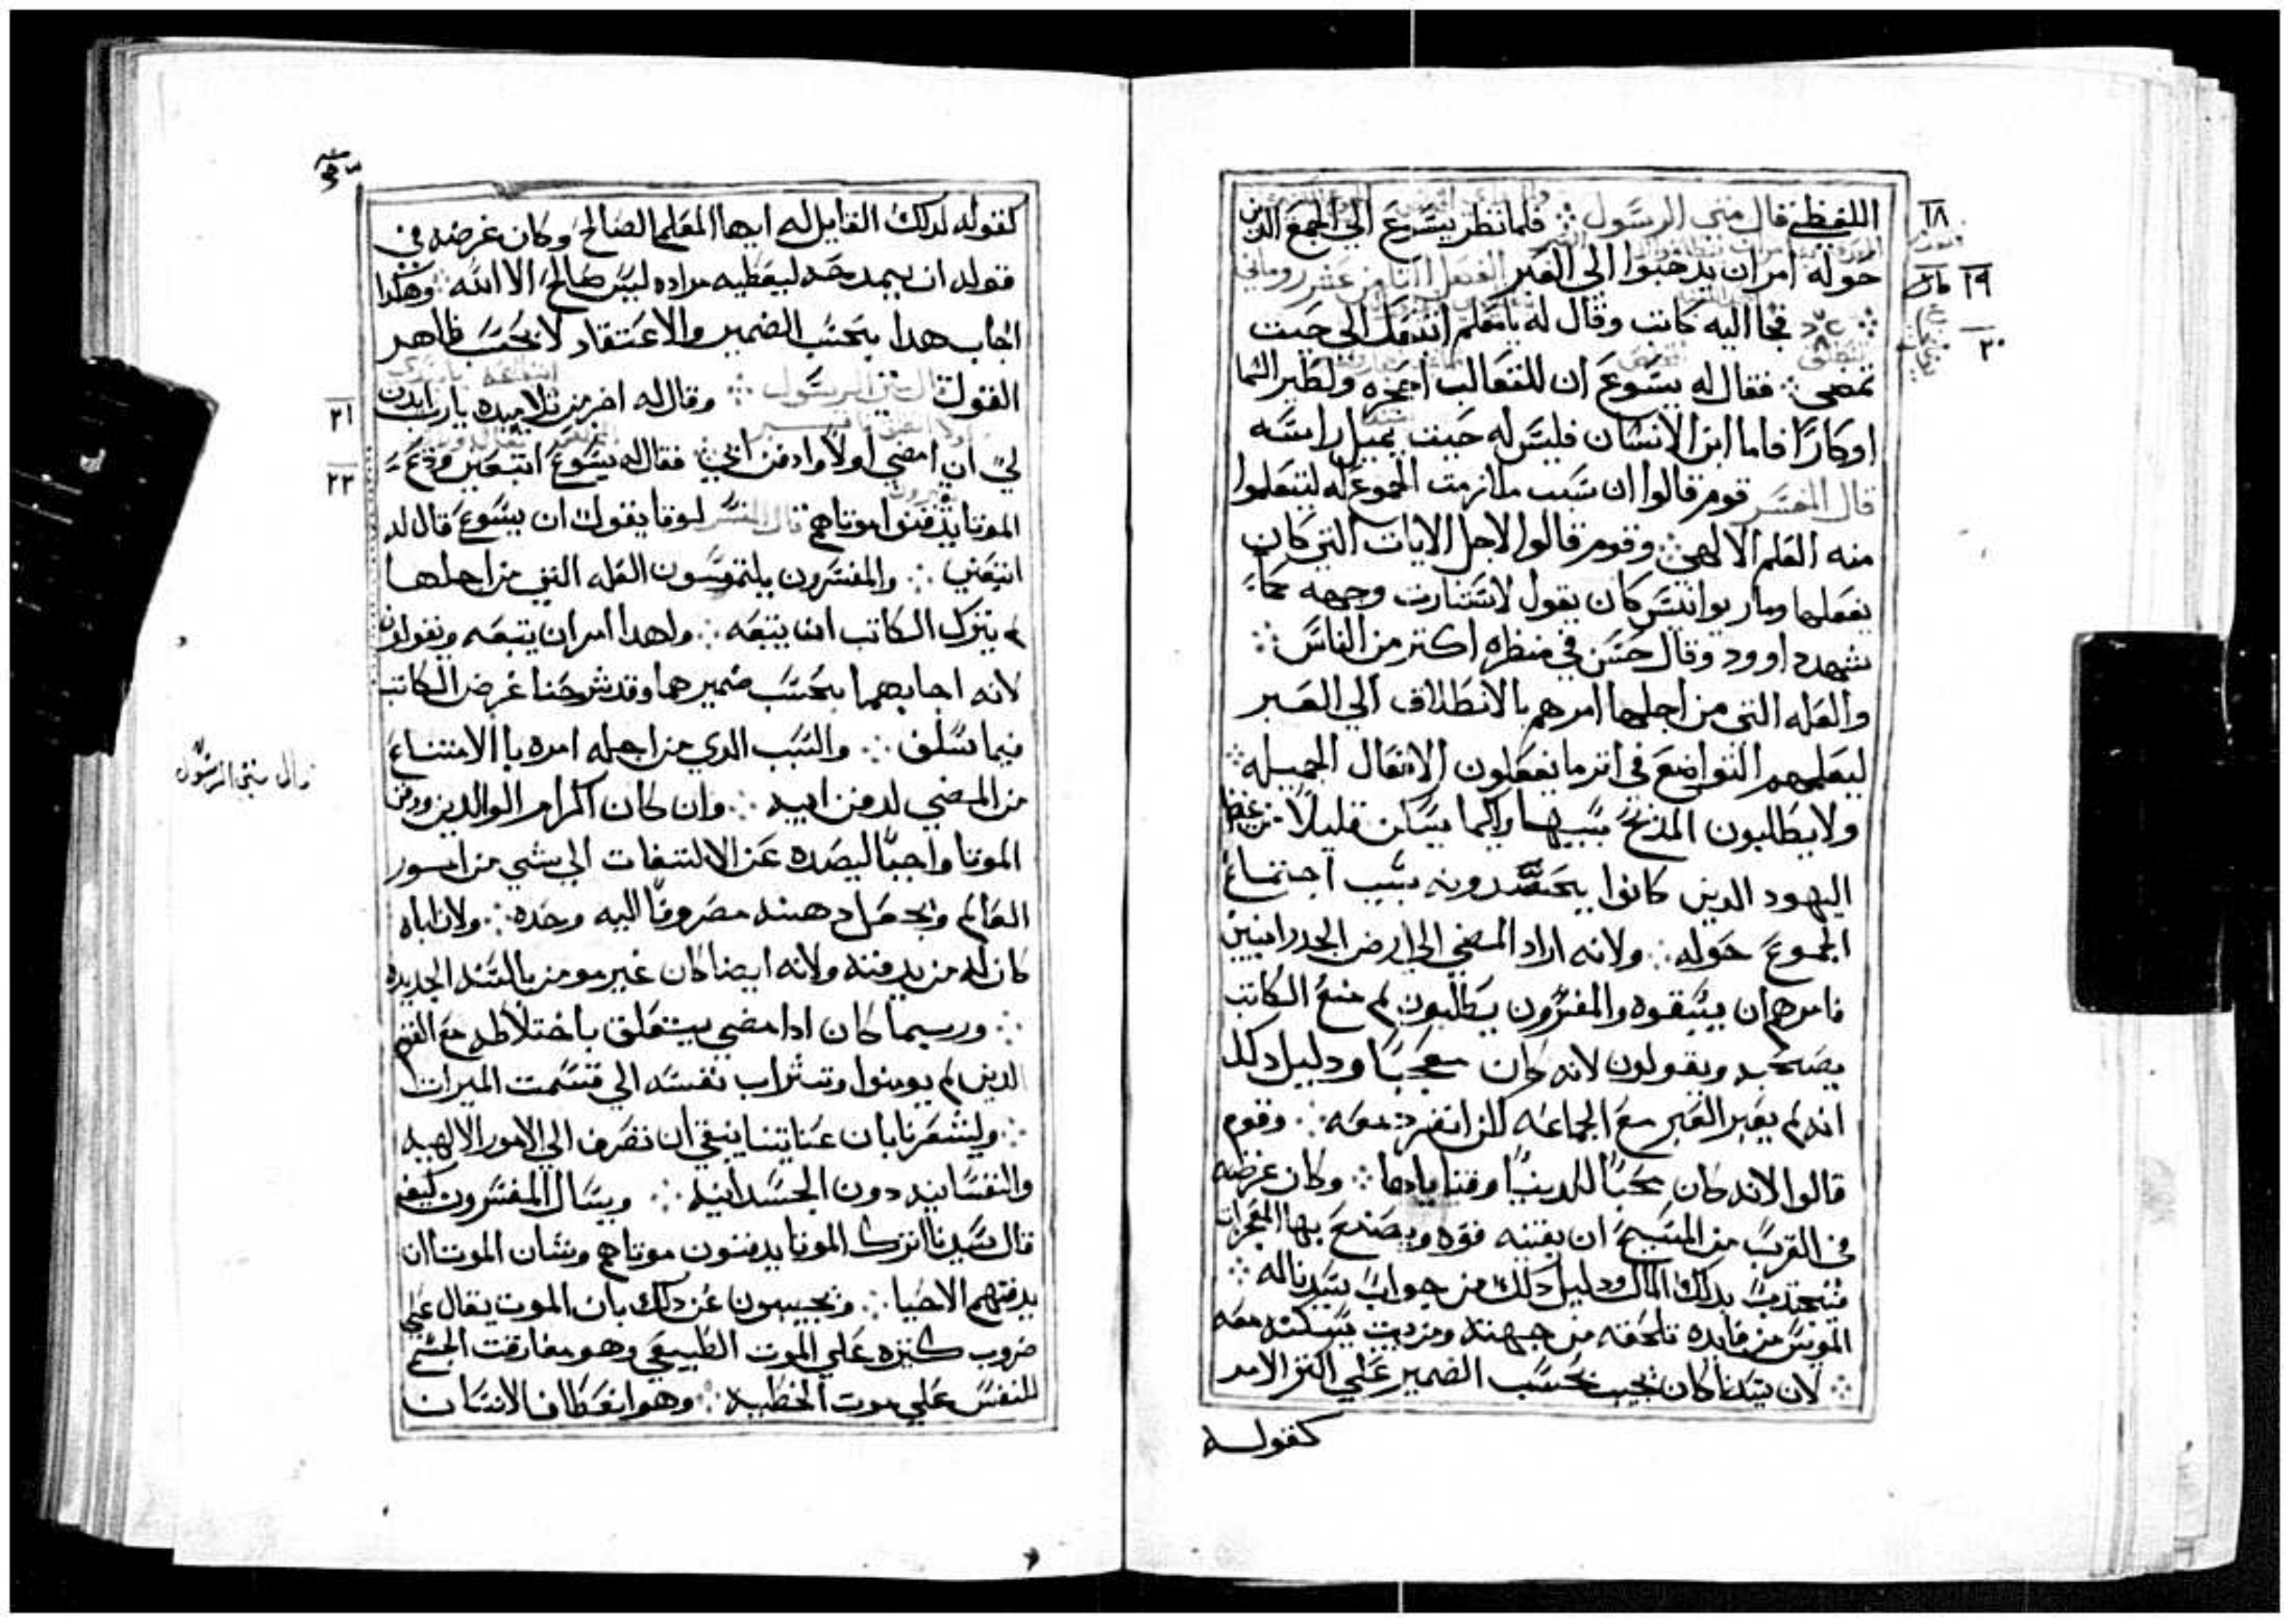 اللفظي قال متى الرسول فلما نظر يسوع الي الجمع الدين
١٨
حوله امر ان يدهبوا الي العبر الفصل الثامن عشر روماني
١٩
فجا اليه كاتب وقال له يامعلم انتقل الى حيت
٢٠
تمضي فقال له يسوع ان للتعالب اجحره ولطير السما
اوكارًا فاما ابن الانسان فليس له حيت يميل راسه
قال المفسر قوم قالوا ان سبب ملازمت الجموع له ليتعلموا
منه العلم الالهي وقوم قالوا لاجل الايات التي كان
يفعلها ومار يوانيس كان يقول لاستنارت وجهه كما
شهد داوود وقال حسن في منظره اكتر من الناس
والعله التي من اجلها امرهم بالانطلاق الي العبر
ليعلمهم التواضع في اتر ما يفعلون الافعال الجميله
ولا يطالبون المدح بسببها وكيما يسكن قليلاً من غيظ
اليهود الدين كانوا يحسدونه بسبب اجتماع
الجموع حوله ولانه اراد المضي الي ارض الجدرانيين
فامرهم ان يسبقوه والمفسرون يطلبون لم منع الكاتب
بصحبه ويقولون لانه كان معجبًا ودليل دلك
انه لم يعبر العبر مع الجماعه لكن انفرد معه وقوم
قالوا لانه كان محبًا للدينا وقنياتها وكان غرضه
في القرب من المسيح ان يقنيه قوه ويصنع بها المعجزات
فيجتدب بدلك المال ودليل دلك من جواب سيدنا له
المويس من فايده تلحقه من جهته ومن بيت يسكنه معه
لان سيدنا كان يجيب بحسب الضمير علي اكتر الامر
كقوله
كقوله لدلك القايل له ايها المعلم الصالح وكان غرضه في
قوله ان يمدحه ليعطيه مراده ليس صالح الا الله وهكدا
اجاب هدا بحسب الضمير والاعتقاد لا بحسب ظاهر
القول قال متى الرسول وقال له اخر من تلاميده يارب ايدن
٢١
لي ان امضي اولاً وادفن ابي فقال له يسوع اتبعني ودع
٢٢
الموتا يدفنوا موتاهم قال المفسر لوقا يقول ان يسوع قال له
اتبعني والمفسرون يلتمسون العله التي من اجلها
لم يترك الكاتب ان يتبعه ولهدا امر ان يتبعه ويقولون
لانه اجابهما بحسب ضميرهما وقد شرحنا غرض الكاتب
فيما سلف والسبب الدي من اجله امره با الامتناع
قال متى الرسول
من المضي لدفن ابيه وان كان اكرام الوالدين ودفن
الموتا واجبًا ليصده عن الالتفات الي شي من امور
العالم ويجعل دهنه مصروفًا اليه وحده ولان اباه
كان له من يدفنه ولانه ايضا كان غير مومن بالسنه الجديده
وربما كان ادا مضي يتعلق باختلاطه مع القوم
الدين لم يومنوا وتشراب نفسه الي قسمت الميرات
وليشعرنا بان عنايتنا ينبغي ان تصرف الي الامور الالهيه
والنفسانيه دون الجسدانيه ويسال المفسرون كيف
قال سيدنا اترك الموتا يدفنون موتاهم وشان الموتا ان
يدفنهم الاحيا ويجيبون عن دلك بان الموت يقال علي
ضروب كتيره علي الموت الطبيعي وهو مفارقت الجسم
للنفس علي موت الخطيه وهو انعطاف الانسان